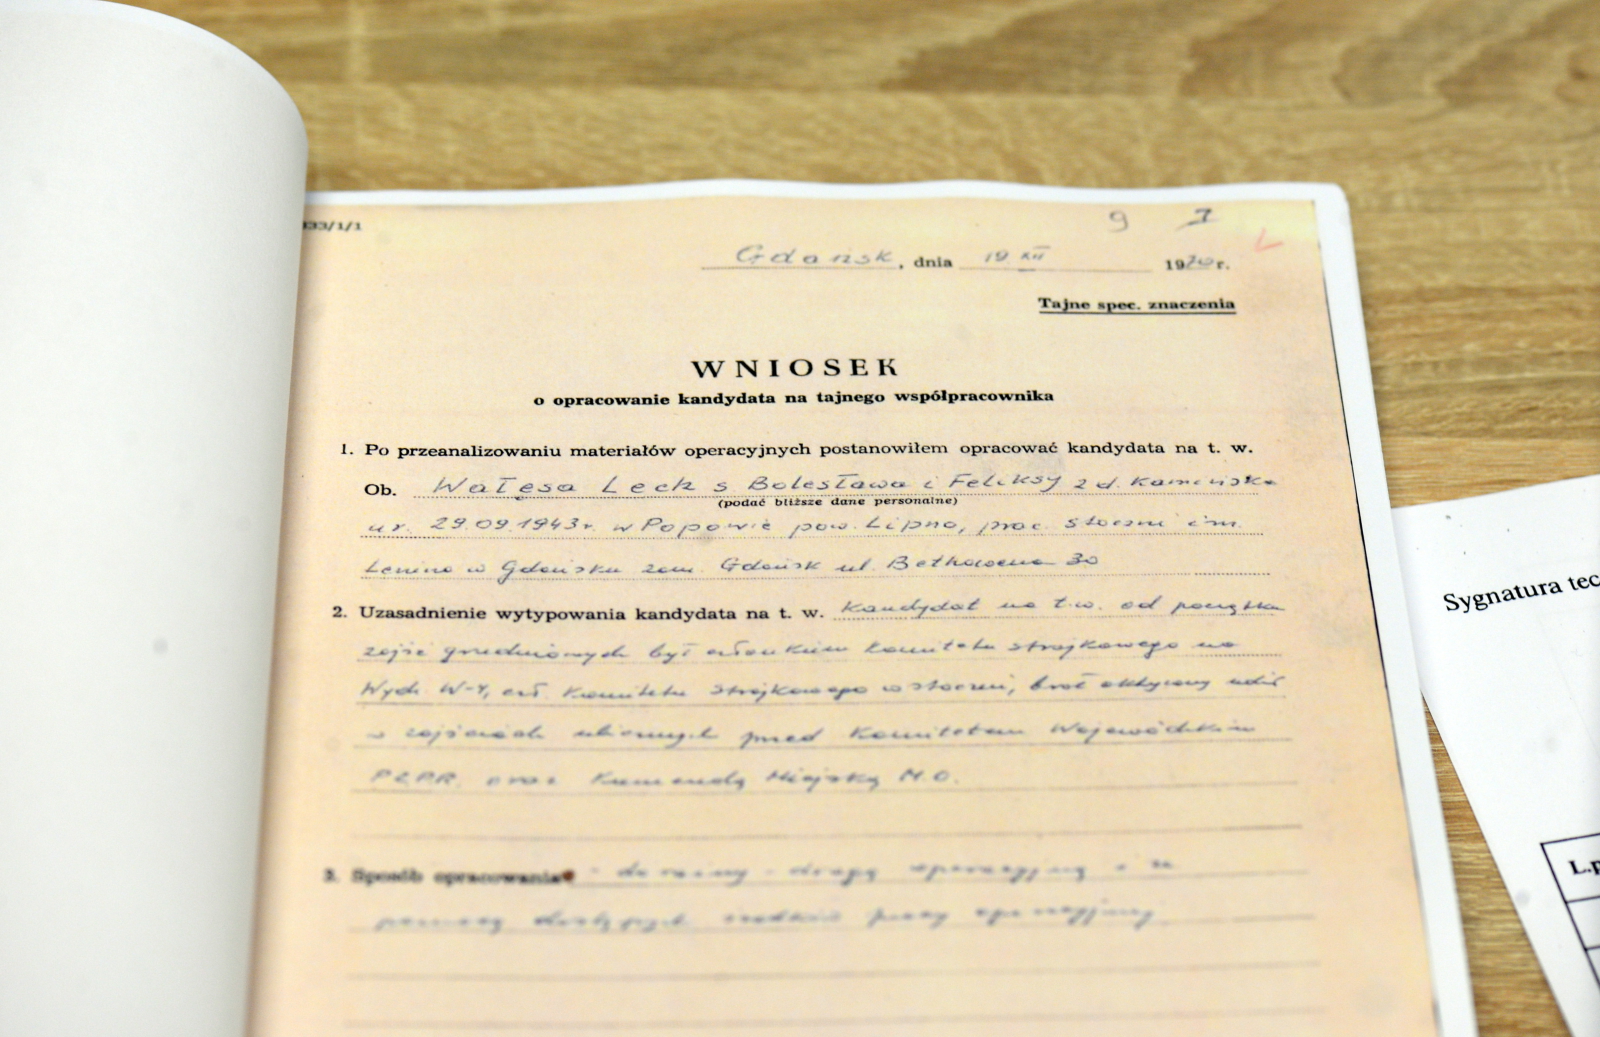 33/1/1
9 7
Gdańsk, dnia 19 XII 1970 r.
Tajne spec. znaczenia
WNIOSEK
o opracowanie kandydata na tajnego współpracownika
1. Po przeanalizowaniu materiałów operacyjnych postanowiłem opracować kandydata na t. w.
Ob. Wałęsa Lech s Bolesława i Feliksy z d. Kamińska
(podać bliższe dane personalne)
ur. 29.09.1943r. w Popowie pow. Lipno, prac. stoczni im.
Lenina w Gdańsku zam. Gdańsk ul. Bethowena 30
2. Uzasadnienie wytypowania kandydata na t. w. kandydat na t.w. od początku
zajść grudniowych był członkiem Komitetu strajkowego na
Wydz. W-4, czł. Komitetu Strajkowego w stoczni, brał aktywny udział
w zajściach ulicznych przed Komitetem Wojewódzkim
PZPR. oraz Komendą Miejską M.O.
3. Sposób opracowania - drogą operacyjną
pomocy środków pracy operacyjnej
Sygnatura tec
L.p